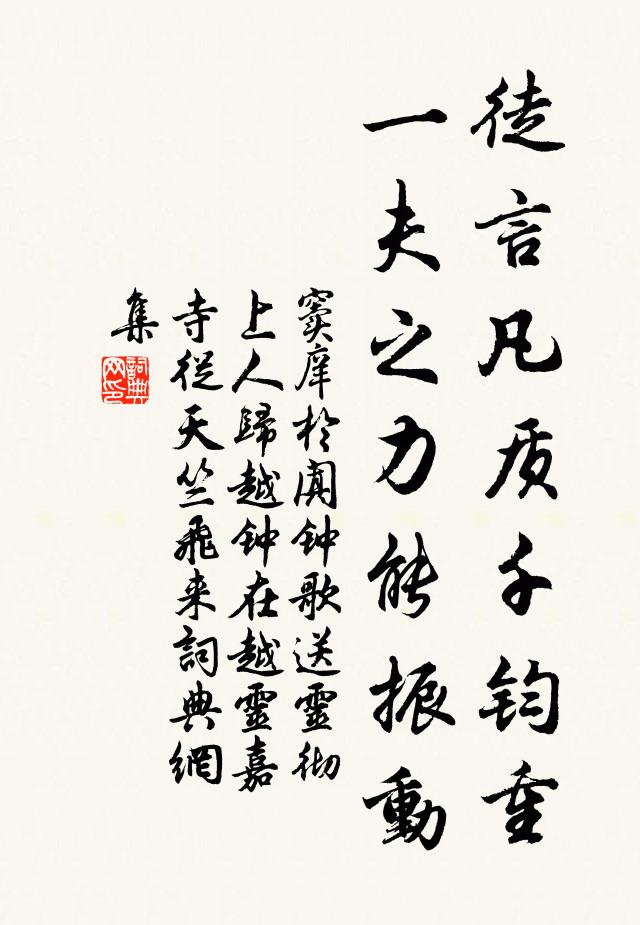 徒言凡质千钧重
一夫之力能振動
窦庠於阗钟歌送靈彻
上人歸越钟在越靈嘉
寺從天竺飛来詞典網
集
詞典
网印